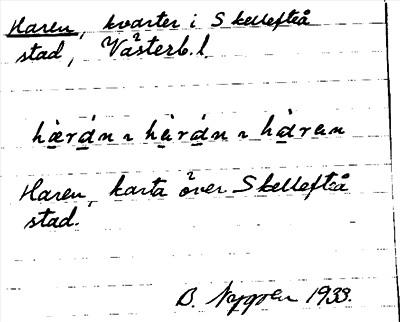 Haren, kvarter i Skellefteå
stad, Västerb.l.
hàrán ~ hàrán ~ hàran
Haren, karta över Skellefteå
stad.
B. Nygren 1933.